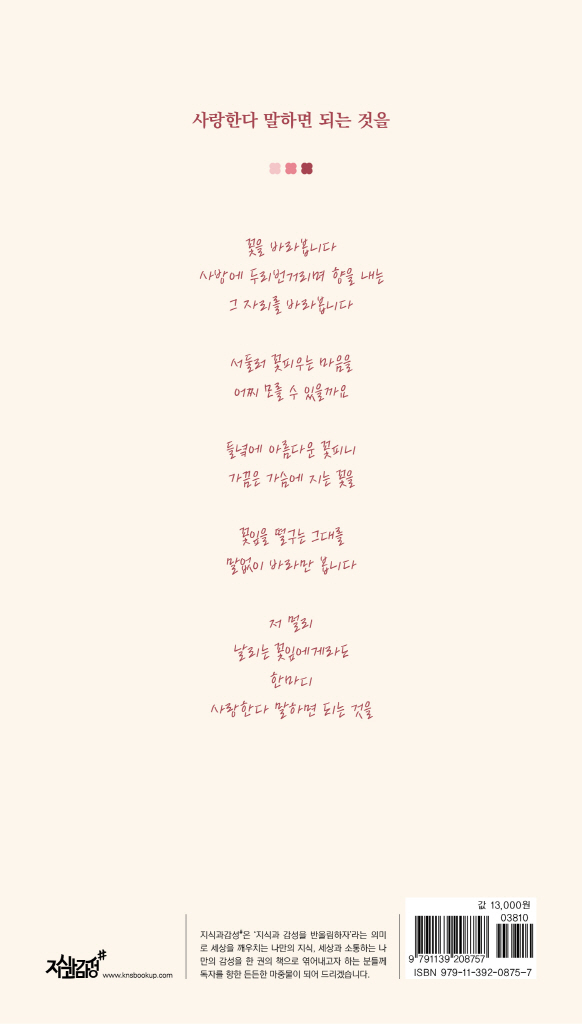 사랑한다 말하면 되는 것을
꽃을 바라봅니다
사방에 두리번거리며 향을 내는
그 자리를 바라봅니다
서둘러 꽃피우는 마음을
어찌 모를 수 있을까요
들녘에 아름다운 꽃피니
가끔은 가슴에 지는 꽃을
꽃잎을 떨구는 그대를
말없이 바라만 봅니다
저 멀리
날리는 꽃잎에게라도
한마디
사랑한다 말하면 되는 것을
지식과감성#
www.knsbookup.com
지식과감성#은 '지식과 감성을 반올림하자'라는 의미
로 세상을 깨우치는 나만의 지식, 세상과 소통하는 나
만의 감성을 한 권의 책으로 엮어내고자 하는 분들께
독자를 향한 든든한 마중물이 되어 드리겠습니다.
값 13,000원
03810
9 791139 208757
ISBN 979-11-392-0875-7